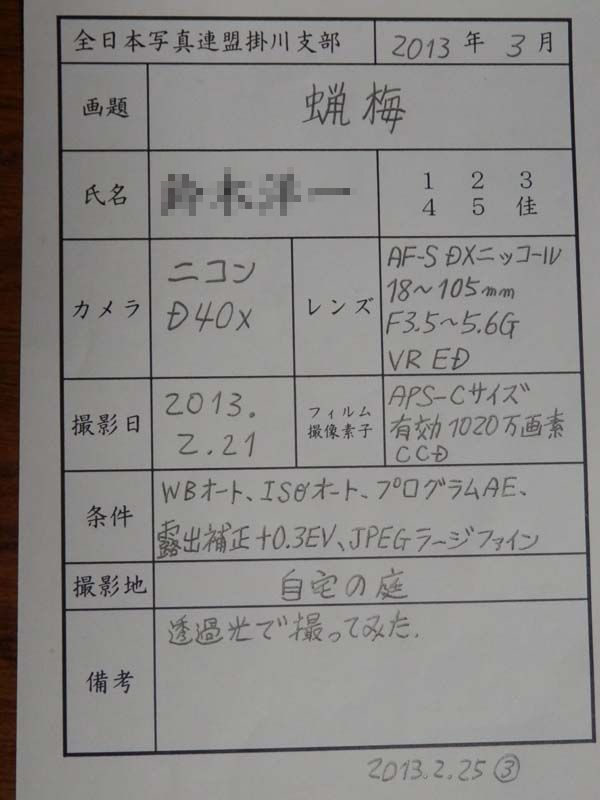 全日本写真連盟掛川支部 2013年3月
画題 蝋梅
氏名
1 2 3
4 5 佳
カメラ
ニコン
D40X
レンズ
AF-S DXニッコール
18～105mm
F3.5～5.6G
VR ED
撮影日
2013.
2.21
フィルム
撮像素子
APS-Cサイズ
有効1020万画素
CCD
条件
WBオート、ISOオート、プログラムAE、
露出補正+0.3EV、JPEGラージファイン
撮影地 自宅の庭
備考
透過光で撮ってみた.
2013.2.25 ③